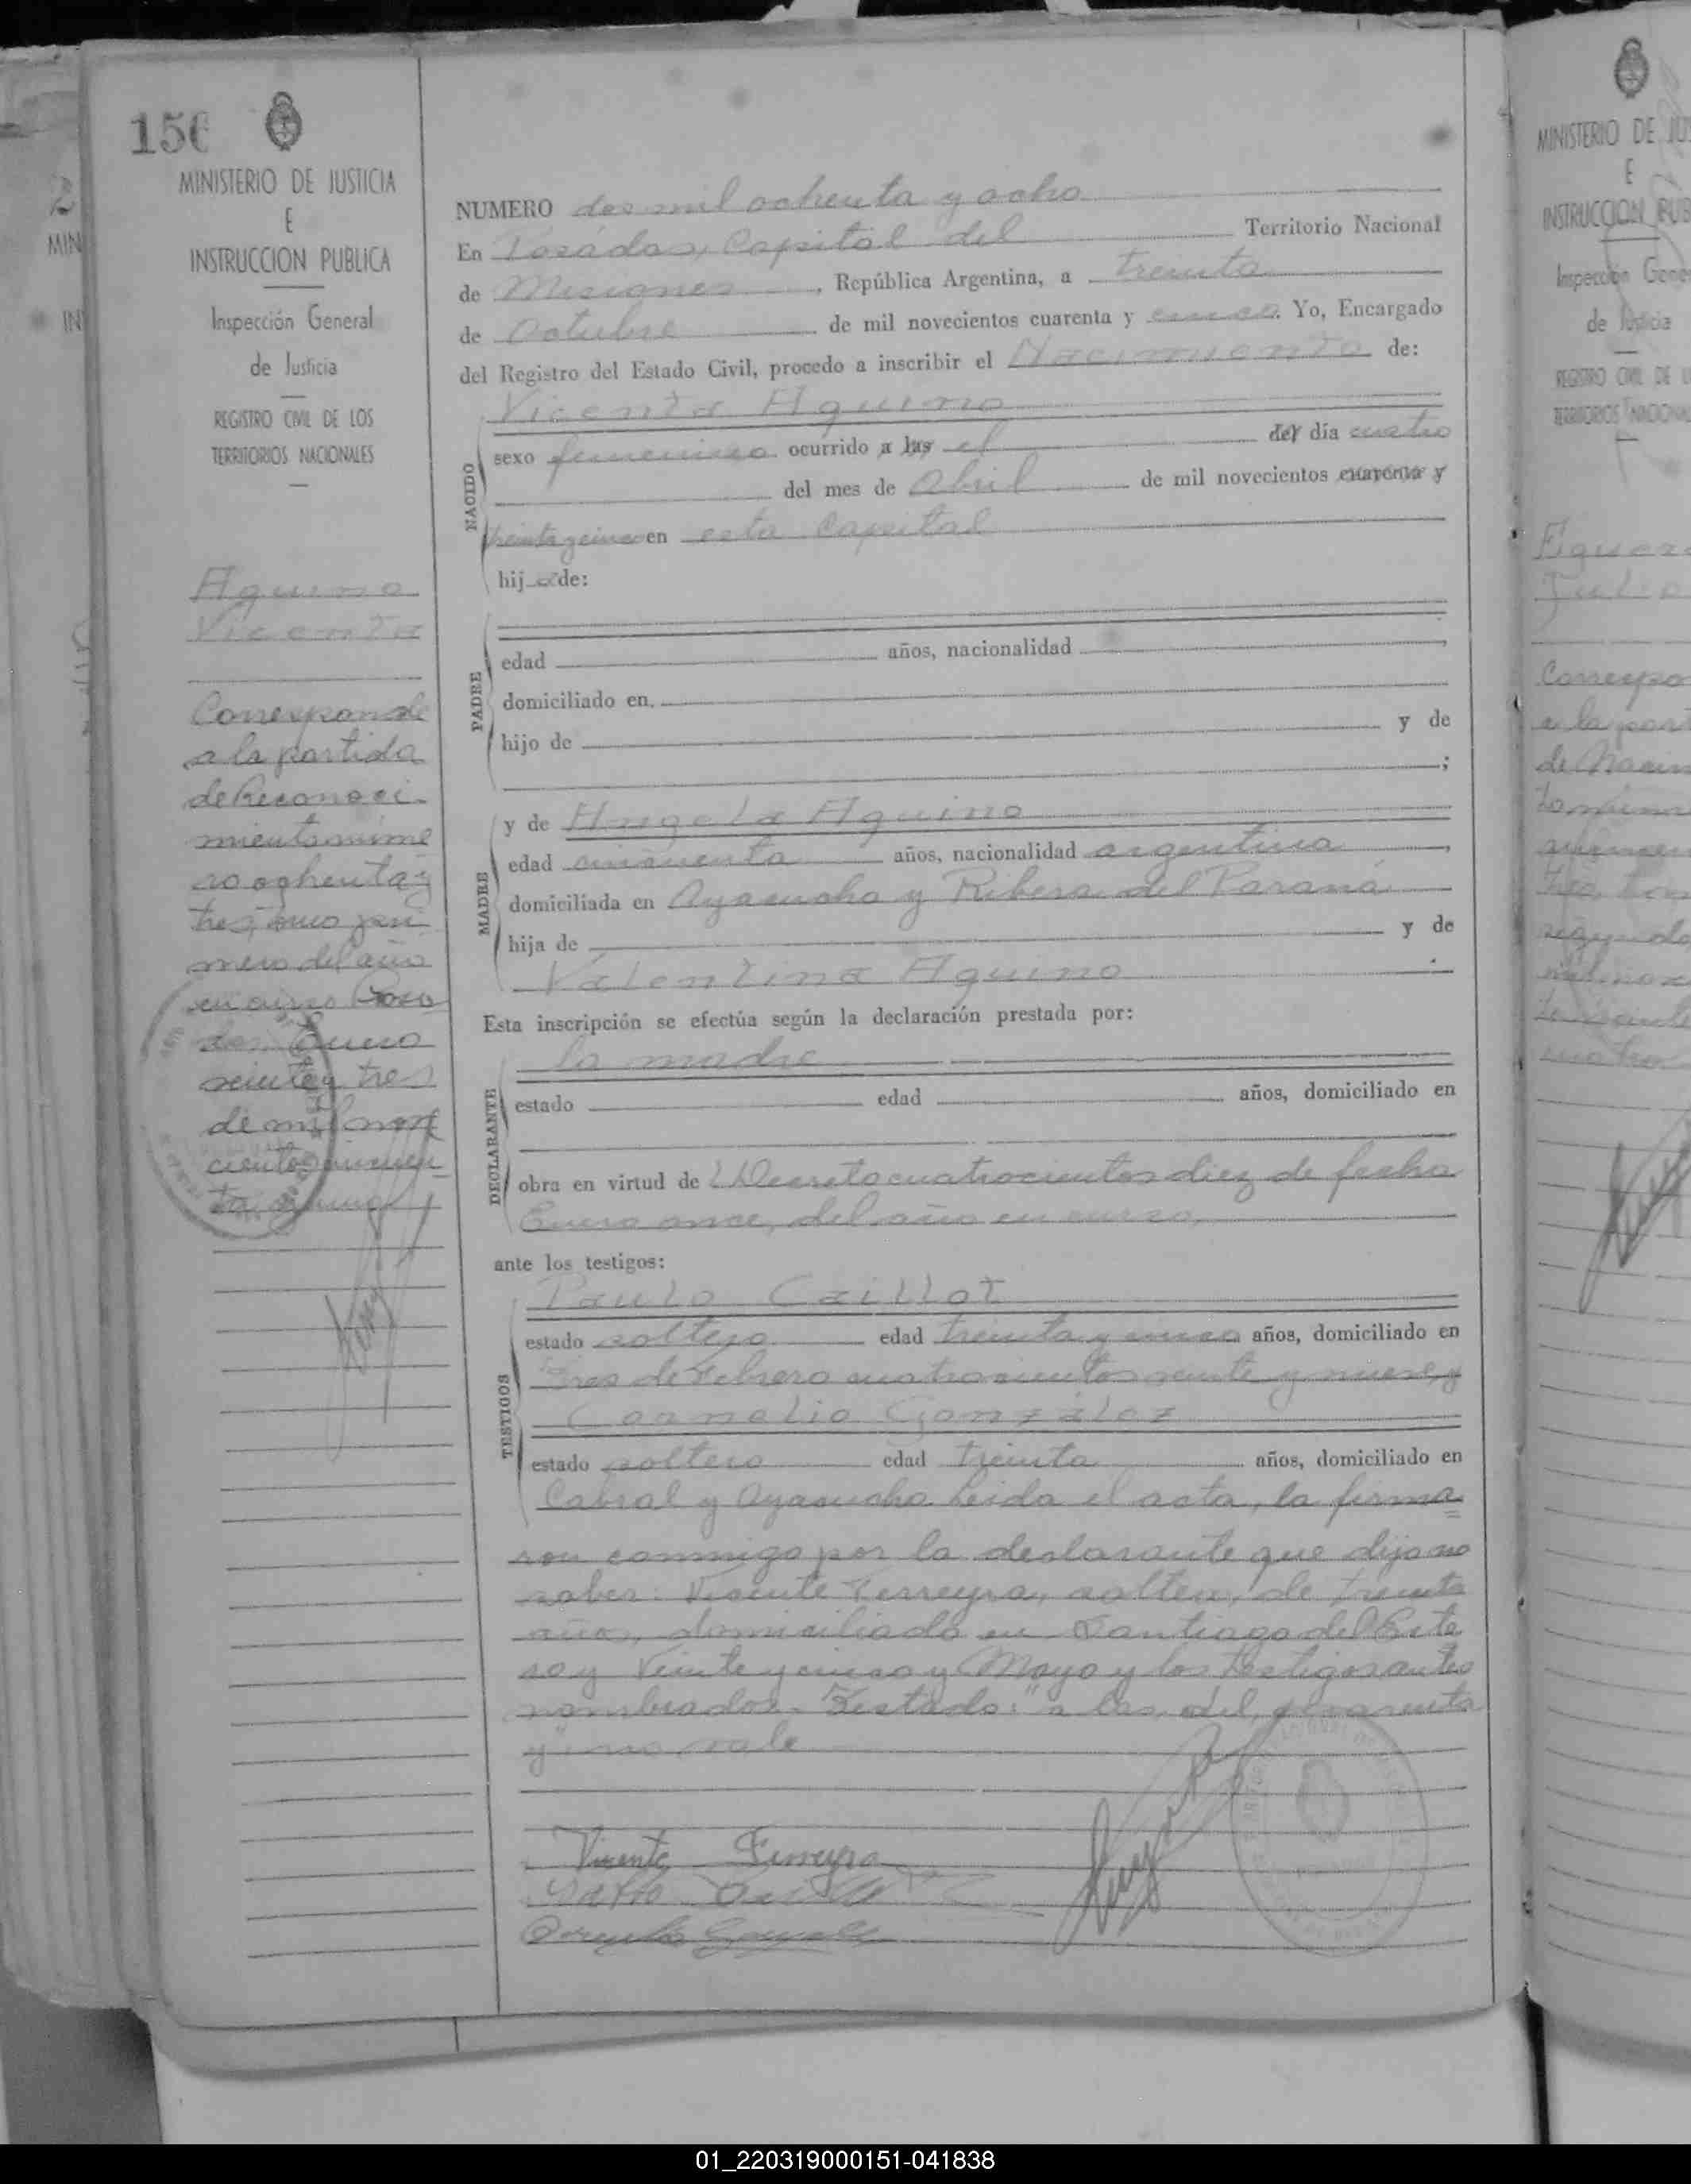 156
MINISTERIO DE JUSTICIA
E
INSTRUCCION PUBLICA
Inspección General
de Justicia
REGISTRO CIVIL DE LOS
TERRITORIOS NACIONALES
Aquino
Vicenta
Corresponde
a la partida
de Reconoci-
miento núme
ro ochenta y
tres, tomo pri
mero del año
en curso Posa
das, Enero
veinte y tres
de mil nove
cientos cincuen-
ta y uno
NUMERO dos mil ochenta y ocho
En Posadas, Capital del Territorio Nacional
de Misiones, República Argentina, a treinta
de Octubre de mil novecientos cuarenta y cinco. Yo, Encargado
del Registro del Estado Civil, procedo a inscribir el Nacimiento de:
Vicenta Aquino
NACIDO
sexo femenino ocurrido a las el del día cuatro
del mes de Abril de mil novecientos cuarenta y
treinta y cinco en esta Capital
hija de:
PADRE
edad años, nacionalidad
domiciliado en.
hijo de y de
;
MADRE
y de Angela Aquino
edad cincuenta años, nacionalidad argentina,
domiciliada en Ayacucho y Ribera del Paraná
hija de y de
Valentina Aquino.
Esta inscripción se efectúa según la declaración prestada por:
la madre
DECLARANTE
estado edad años, domiciliado en
obra en virtud de Decreto cuatrocientos diez de fecha
Enero once, del año en curso,
ante los testigos:
TESTIGOS
Paulo Caillot
estado soltero edad treinta y cinco años, domiciliado en
Tres de Febrero cuatrocientos veinte y nueve, y
Cornelio González
estado soltero edad treinta años, domiciliado en
Cabral y Ayacucho. Leida el acta, la firma
ron conmigo por la declarante que dijo no
saber: Vicente Ferreyra, soltero, de treinta
años, domiciliado en Santiago del Este
ro y Veinte y cinco y Mayo y los testigos antes
nombrados. Testado: "a las, del, cuarenta
y" no vale
Vicente Ferreyra
MINISTERIO DE JUS
E
INSTRUCCION PUB
Inspección Gene
de Justicia
REGISTRO CIVIL DE L
TERRITORIOS NACIONAL
Correspo
a la part
de Nacim
01_220319000151-041838